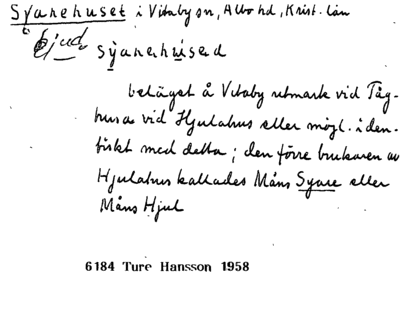 Syarehuset i Vitaby sn, Albo hd, Krist. län
ejud. syarehused
beläget å Vitaby utmark vid Tåg-
husa vid Hjulahus eller möjl. iden-
tiskt med detta; den förre brukaren av
Hjulahus kallades Måns Syare eller
Måns Hjul
6184 Ture Hansson 1958